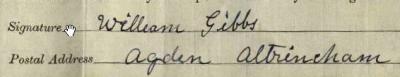 Signature William Gibbs
Postal Address Agden Altrincham